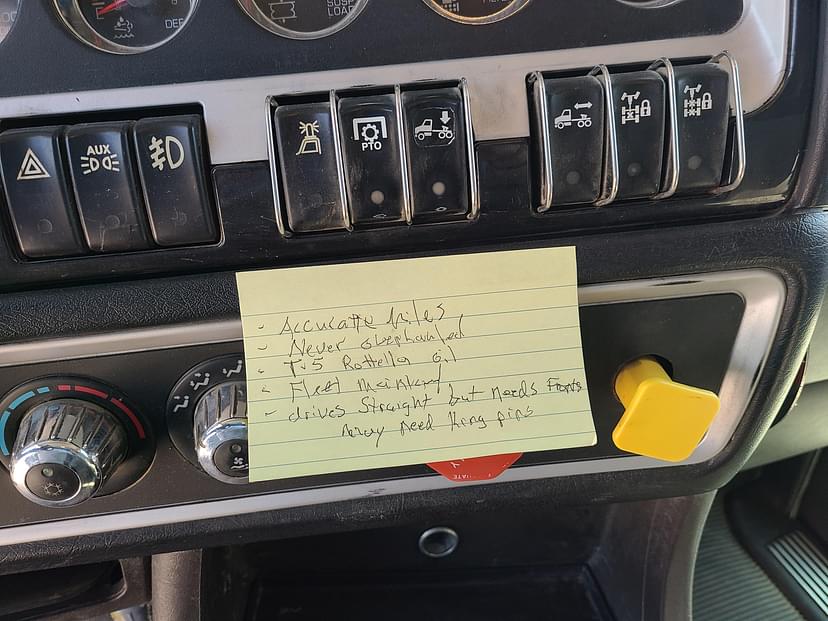 DEF
SUSP
LOAD
AUX
PTO
- Accurate Miles
- Never overhauled
- T-5 Rottella oil
- Fleet maintained
- drives Straight but needs
may need King pins